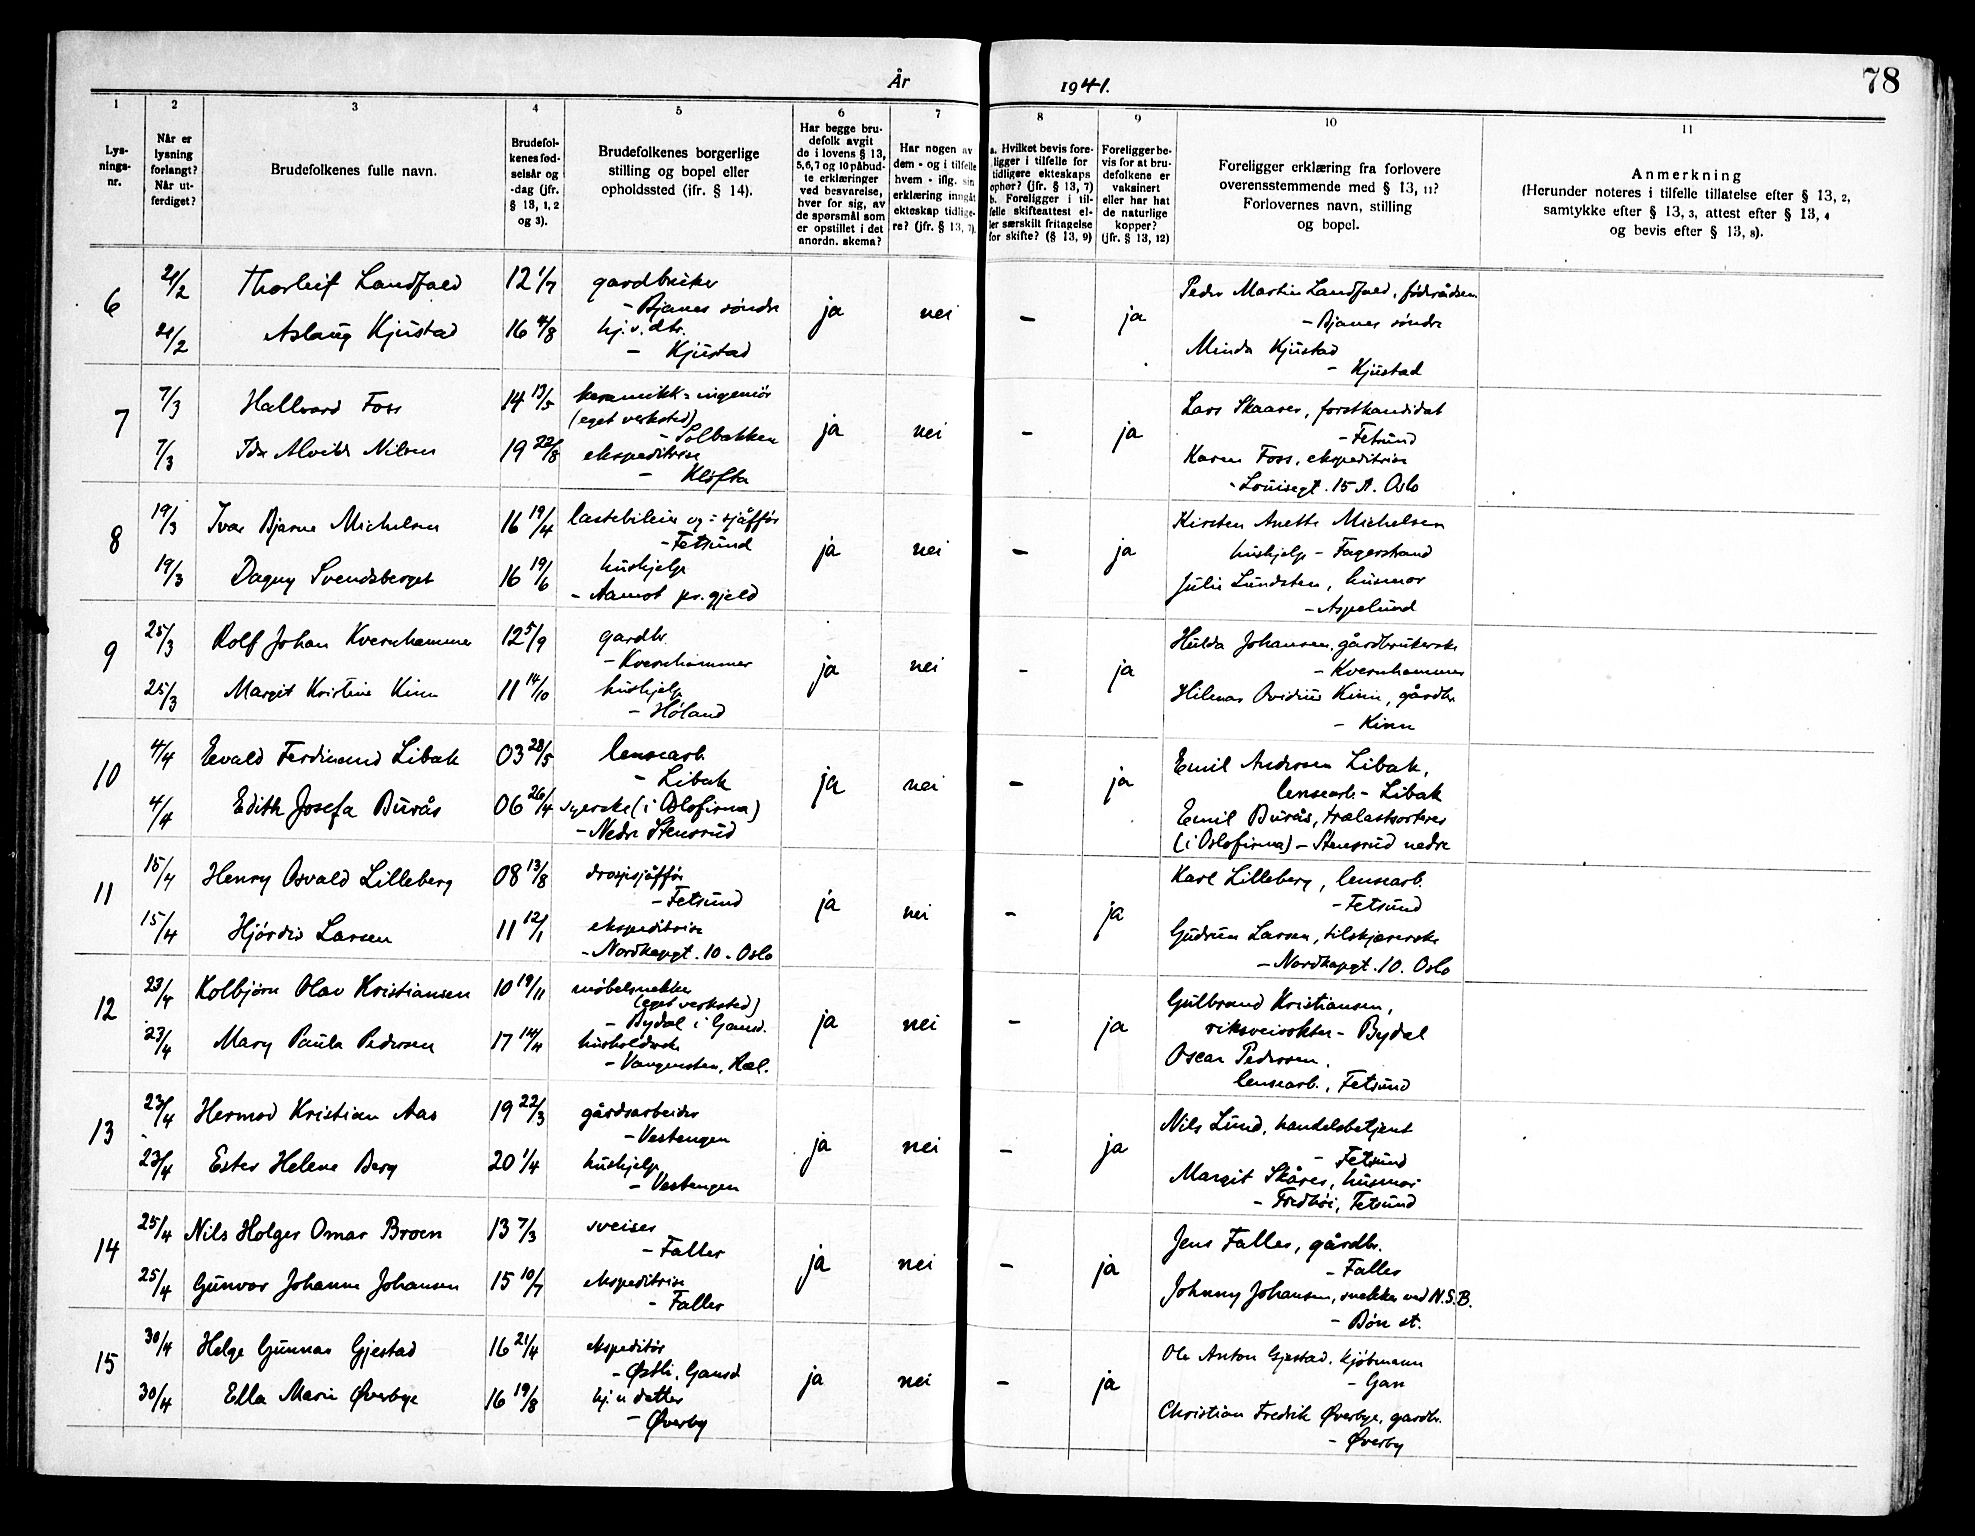 År 1941.
78
1 2 3 4 5 6 7 8 9 10 11
Lys-
nings-
nr.
Når er
lysning
forlangt?
Når ut-
ferdiget?
Brudefolkenes fulle navn.
Brudefol-
kenes fød-
selsår og
-dag (jfr.
§ 13, 1, 2
og 3).
Brudefolkenes borgerlige
stilling og bopel eller
opholdssted (jfr. § 14).
Har begge bru-
defolk avgit
de i lovens § 13,
5,6,7 og 10 påbud-
te erklæringer
ved besvarelse,
hver for sig, av
de spørsmål som
er opstillet i det
anordn. skema?
Har nogen av
dem - og i tilfelle
hvem - iflg. sin
erklæring inngått
ekteskap tidlige-
re? (jfr. § 13, 7).
a. Hvilket bevis fore-
ligger i tilfelle for
tidligere ekteskaps
ophør? (jfr. § 13, 7)
b. Foreligger i til-
felle skifteattest el-
ler særskilt fritagelse
for skifte? (§ 13, 9)
Foreligger be-
vis for at bru-
defolkene er
vaksinert
eller har hat
de naturlige
kopper?
(jfr. § 13, 12)
Foreligger erklæring fra forlovere
overensstemmende med § 13, 11?
Forlovernes navn, stilling
og bopel.
Anmerkning
(Herunder noteres i tilfelle tillatelse efter § 13, 2,
samtykke efter § 13, 3, attest efter § 13, 4
og bevis efter § 13, 8).
6 21/2 Thorleif Landfald 12 1/7 gardbruker
- Bjanes søndre
21/2 Aslaug Kjustad 16 4/8 hj.v.dtr.
- Kjustad
ja nei - ja
Peder Martin Landfald, føderådsm.
- Bjanes søndre
Minda Kjustad
- Kjustad
7 7/3 Hallvard Foss 14 13/5 keramikk-ingeniør
(eget verksted)
- Solbakken
7/3 Ida Alvilde Nilsen 19 22/8 ekspeditrise
- Kløfta
ja nei - ja
Lars Skaarer, forstkandidat
- Fetsund
Karen Foss, ekspeditrise
- Louisegt. 15 A. Oslo
8 19/3 Ivar Bjarne Michelsen 16 19/4 lastebileier og -sjåffør
- Fetsund
19/3 Dagny Svendsberget 16 19/6 hushjelp
- Aamot pr.gjeld
ja nei - ja
Kirsten Anette Michelsen
hushjelp - Fagerstrand
Julie Lundsten, husmor
- Aspelund
9 25/3 Rolf Johan Kvernhammer 12 5/9 gardbr.
- Kvernhammer
25/3 Margit Kristine Kinn 11 14/10 hushjelp
- Høland
ja nei - ja
Hulda Johansen, gårdbrukerske
- Kvernhammer
Hilmar Ovidius Kinn, gårdbr.
- Kinn
10 4/4 Evald Ferdinand Libak 03 28/5 lensearb.
- Libak
4/4 Edith Josefa Burås 06 26/4 syerske (i Oslofirma)
- Nedre Stensrud
ja nei - ja
Emil Andersen Libak,
lensearb. - Libak
Emil Burås, trælastsorterer
(i Oslofirma) - Stensrud nedre
11 15/4 Henry Osvald Lilleberg 08 13/8 drosjesjåffør
- Fetsund
15/4 Hjørdis Larsen 11 12/1 ekspeditrise
- Nordkapgt. 10 - Oslo
ja nei - ja
Karl Lilleberg, lensearb.
- Fetsund
Gudrun Larsen, tilskjærerske
- Nordkapgt. 10. Oslo
12 23/4 Kolbjørn Olav Kristiansen 10 19/11 møbelsnekker
(eget verksted)
- Bydal i Gansd.
23/4 Mary Paula Pedersen 17 14/4 husholderske
- Vangensten, Ræl.
ja nei - ja
Gulbrand Kristiansen,
riksveivokter - Bydal
Oscar Pedersen
lensearb., Fetsund
13 23/4 Hermod Kristian Aas 19 22/3 gårdsarbeider
- Vestengen
23/4 Ester Helene Berg 20 1/4 hushjelp
- Vestengen
ja nei - ja
Nils Lund, handelsbetjent
- Fetsund
Margit Skårer, husmor
- Fredbøi, Fetsund
14 25/4 Nils Holger Omar Broen 13 7/3 sveiser
- Faller
25/4 Gunvor Johanne Johansen 15 10/7 ekspeditrise
- Faller
ja nei - ja
Jens Faller, gårdbr.
- Faller
Johnny Johansen, snekker ved N.S.B.
- Bøn st.
15 30/4 Helge Gunnar Gjestad 16 21/4 ekspeditør
- Østli, Gansd
30/4 Ella Marie Øverbye 16 19/8 hj.v datter
- Øverby
ja nei - ja
Ole Anton Gjestad, kjøbmann
- Gan
Christian Fredrik Øverbye, gardbr.
- Øverby